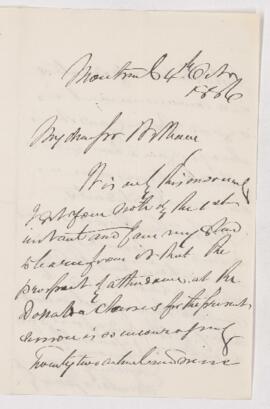 Montreal 4th Octr
1886
My dear Sir William
It is only this morning
I got your note of the 1st
instant and I am very glad
to learn from it that the
prospect of attendance at the
Donalda Classes for the present
session is so encouraging
Twenty two and nine